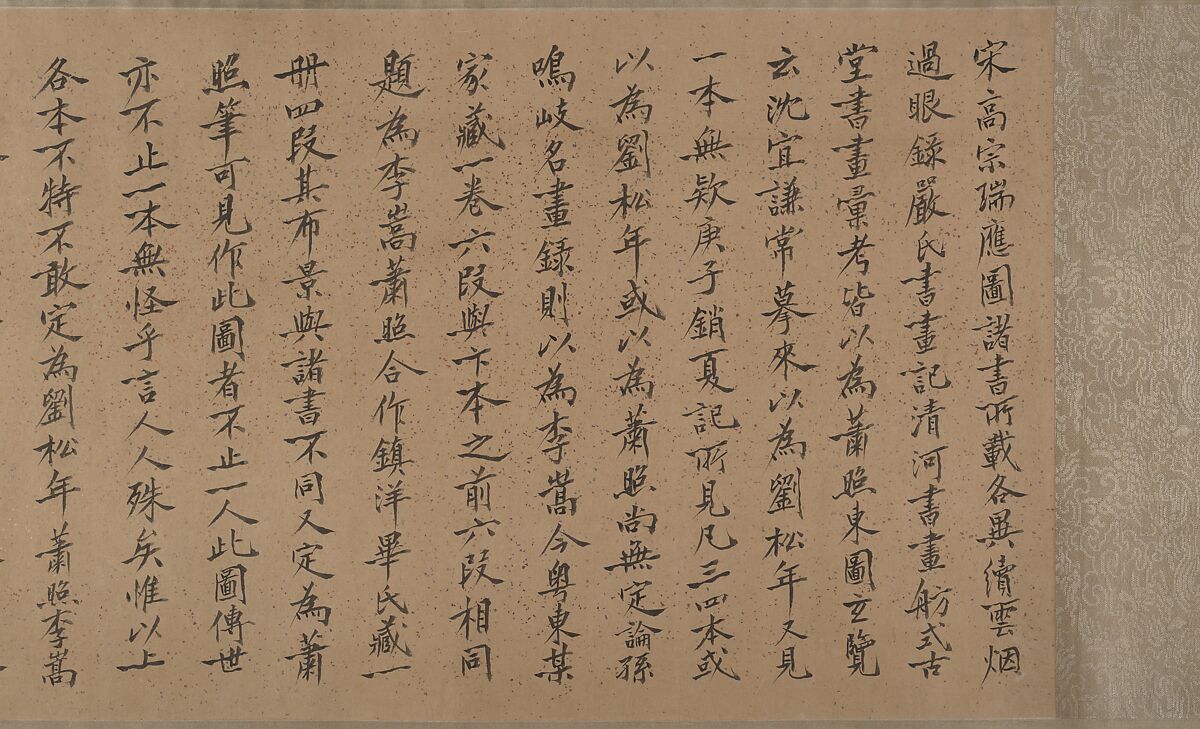 宋高宗瑞應圖諸書所載各異續雲烟
過眼錄嚴氏書畫記清河書畫舫式古
堂書畫彙考皆以為蕭照東圖玄覽
云沈宜謙常摹來以為劉松年又見
一本無欵庚子銷夏記所見凡三四本或
以為劉松年或以為蕭照尚無定論孫
鳴岐名畫錄則以為李嵩今粵東某
家藏一卷六段與卞本之前六段相同
題為李嵩蕭照合作鎮洋畢氏藏一
冊四段其布景與諸書不同又定為蕭
照筆可見作此圖者不止一人此圖傳世
亦不止一本無怪乎言人人殊矣惟以上
各本不特不敢定為劉松年蕭照李嵩